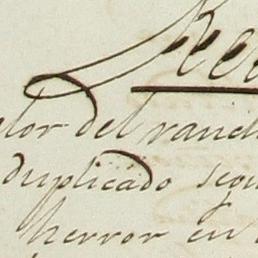 Rec
elor del ranch
duplicado segu
herror en